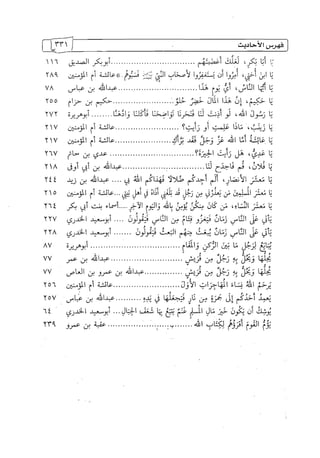 فهرس الأحاديث ٣٣١
يا أبا بكر، لعلك أغضبتهم ... أبو بكر الصديق ١١٦
يا ابن أختي، أمروا أن يستغفروا لأصحاب النبي ﷺ فسبوهم ... عائشة أم المؤمنين ٢٨٩
يا أيها الناس، أي يوم هذا ... عبدالله بن عباس ٧٨
يا حكيم، إن هذا المال خضر حلو ... حكيم بن حزام ٢٥٥
يا رسول الله، لو أذنت لنا فنحرنا نواضحنا فأكلنا وادهنا ... أبو هريرة ٢٧٢
يا زينب، ماذا علمت أو رأيت؟ ... عائشة أم المؤمنين ٢١٧
يا عائشة أما الله عز وجل فقد برأك ... عائشة أم المؤمنين ٢١٧
يا عدي، هل رأيت الحيرة؟ ... عدي بن حاتم ٢٦٧
يا فلان، قم فاجدح لنا ... عبدالله بن أبي أوفى ٢١٨
يا معشر الأنصار، ألم أجدكم ضلالا فهداكم الله في ... عبدالله بن زيد ٢٤٤
يا معشر المسلمين من يعذرني من رجل قد بلغني أذاه في أهل بيتي ... عائشة أم المؤمنين ٢١٥
يا معشر النساء، من كان منكن يؤمن بالله واليوم الآخر ... أسماء بنت أبي بكر ٢٦٤
يأتي على الناس زمان فيغزو فئام من الناس فيقولون ... أبو سعيد الخدري ٢٢٧
يأتي على الناس زمان يبعث منهم البعث فيقولون ... أبو سعيد الخدري ٢٢٨
يبايع لرجل ما بين الركن والمقام ... أبو هريرة ٨٧
يلحد بها ويحل به رجل من قريش ... عبدالله بن عمر ٧٧
يحلها ويحل به رجل من قريش ... عبدالله بن عمرو بن العاص ٧٧
يرحم الله نساء المهاجرات الأول ... عائشة أم المؤمنين ٢٥٦
يعمد أحدكم إلى جمرة من نار فيجعلها في يده ... عبدالله بن عباس ٢٥٧
يوشك أن يكون خير مال المسلم غنم يتبع بها شعف الجبال ... أبو سعيد الخدري ٦٤
يؤم القوم أقرؤهم لكتاب الله ... عقبة بن عمرو ٢٣٩